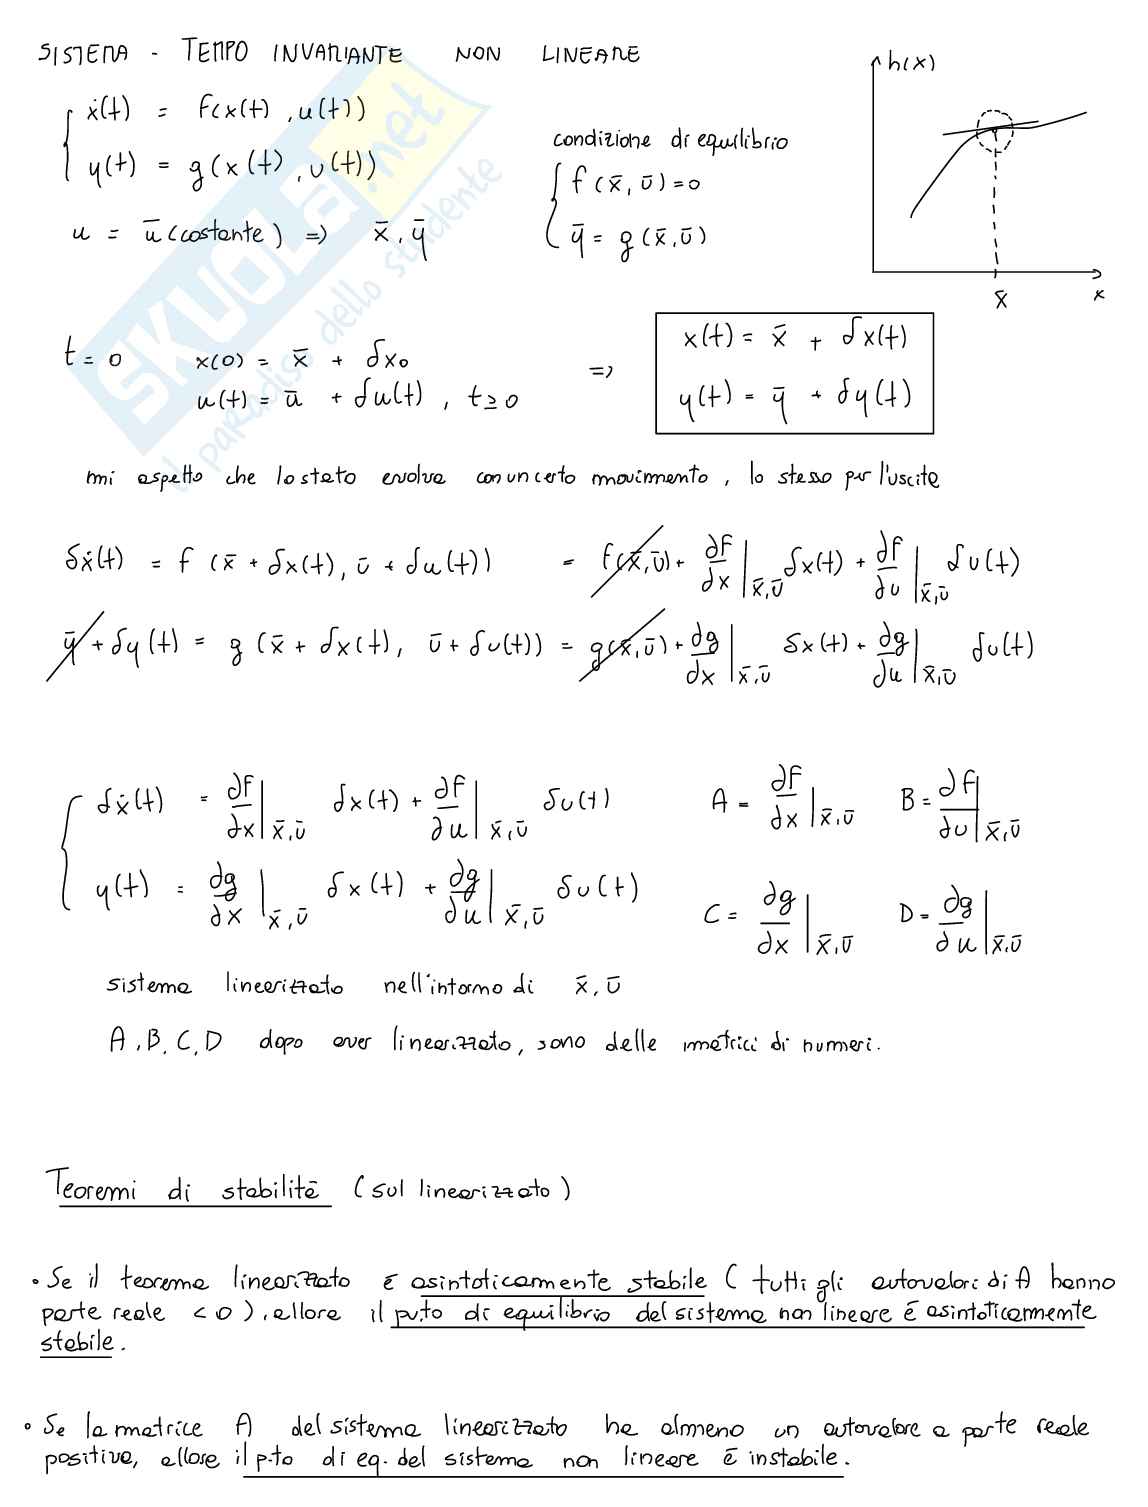 SISTEMA - TEMPO INVARIANTE NON LINEARE
ẋ(t) = f(x(t), u(t))
y(t) = g(x(t), u(t))
u = ū (costante) => x̄, ȳ
condizione di equilibrio
f(x̄, ū) = 0
ȳ = g(x̄, ū)
h(x)
x̄
x
t = 0 x(0) = x̄ + δx₀
u(t) = ū + δu(t), t ≥ 0
=>
x(t) = x̄ + δx(t)
y(t) = ȳ + δy(t)
mi aspetto che lo stato evolva con un certo movimento, lo stesso per l'uscita
δẋ(t) = f(x̄ + δx(t), ū + δu(t)) = f(x̄, ū) + ∂f/∂x|x̄,ū δx(t) + ∂f/∂u|x̄,ū δu(t)
ȳ + δy(t) = g(x̄ + δx(t), ū + δu(t)) = g(x̄, ū) + ∂g/∂x|x̄,ū δx(t) + ∂g/∂u|x̄,ū δu(t)
δẋ(t) = ∂f/∂x|x̄,ū δx(t) + ∂f/∂u|x̄,ū δu(t)
y(t) = ∂g/∂x|x̄,ū δx(t) + ∂g/∂u|x̄,ū δu(t)
A = ∂f/∂x|x̄,ū B = ∂f/∂u|x̄,ū
C = ∂g/∂x|x̄,ū D = ∂g/∂u|x̄,ū
sistema linearizzato nell'intorno di x̄, ū
A, B, C, D dopo aver linearizzato, sono delle matrici di numeri.
Teoremi di stabilità (sul linearizzato)
• Se il teorema linearizzato é asintoticamente stabile ( tutti gli autovalori di A hanno
parte reale < 0 ), allora il p.to di equilibrio del sistema non lineare é asintoticamente
stabile.
• Se la matrice A del sistema linearizzato ha almeno un autovalore a parte reale
positiva, allora il p.to di eq. del sistema non lineare é instabile.
SKUOLA.net
il paradiso dello studente